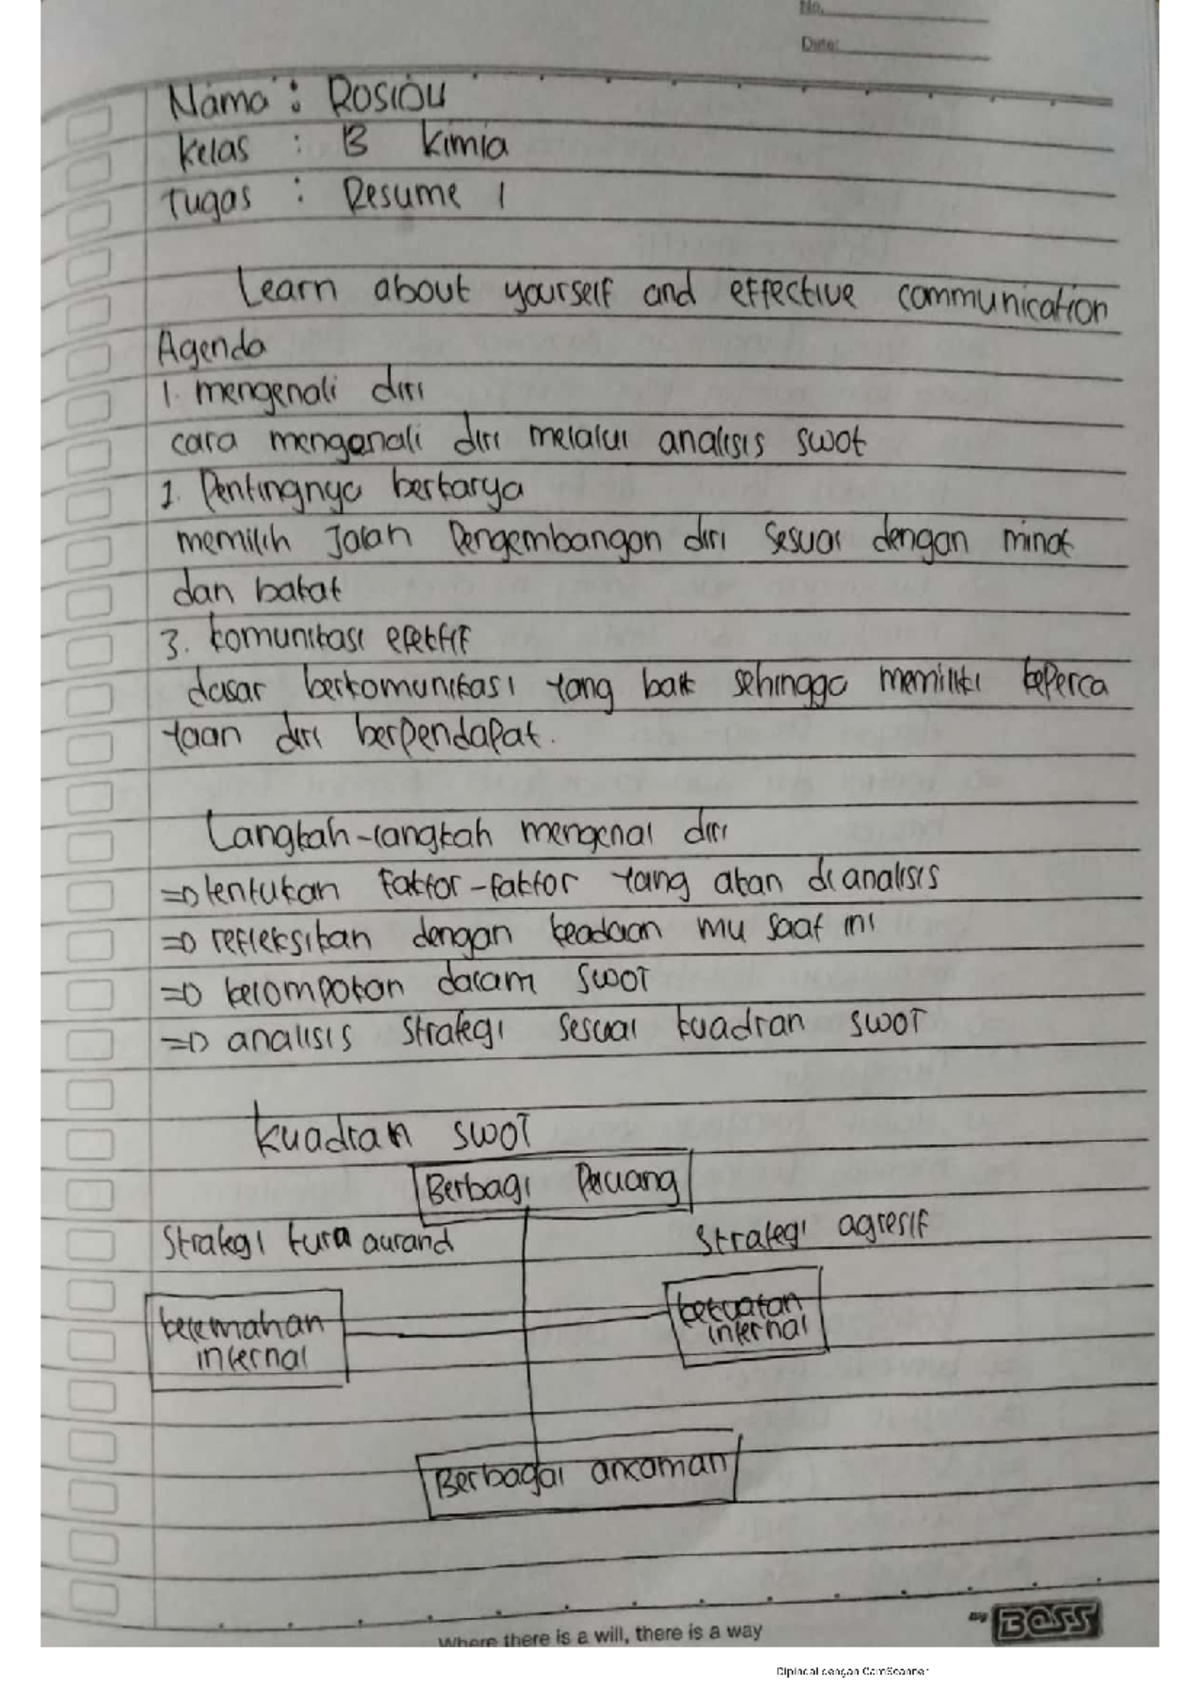 No.
Date:
Nama : Rosidu
Kelas : B Kimia
Tugas : Resume 1
Learn about yourself and effective communication
Agenda
1. mengenali diri
cara mengenali diri melalui analisis swot
2. Pentingnya berkarya
memilih Jalan Pengembangan diri Sesuai dengan minat
dan bakat
3. komunikasi efektif
dasar berkomunikasi yang baik sehingga memiliki keperca
yaan diri berpendapat.
Langkah-langkah mengenal diri
=> tentukan faktor-faktor yang akan di analisis
=> refleksikan dengan keadaan mu saat ini
=> kelompokan dalam SWOT
=> analisis strategi sesuai kuadran SWOT
kuadran SWOT
Berbagi Peluang
Strategi tura aurand
Strategi agresif
kelemahan
internal
kekuatan
internal
Berbagai ancaman
Where there is a will, there is a way
By BOSS
Dipindai dengan CamScanner